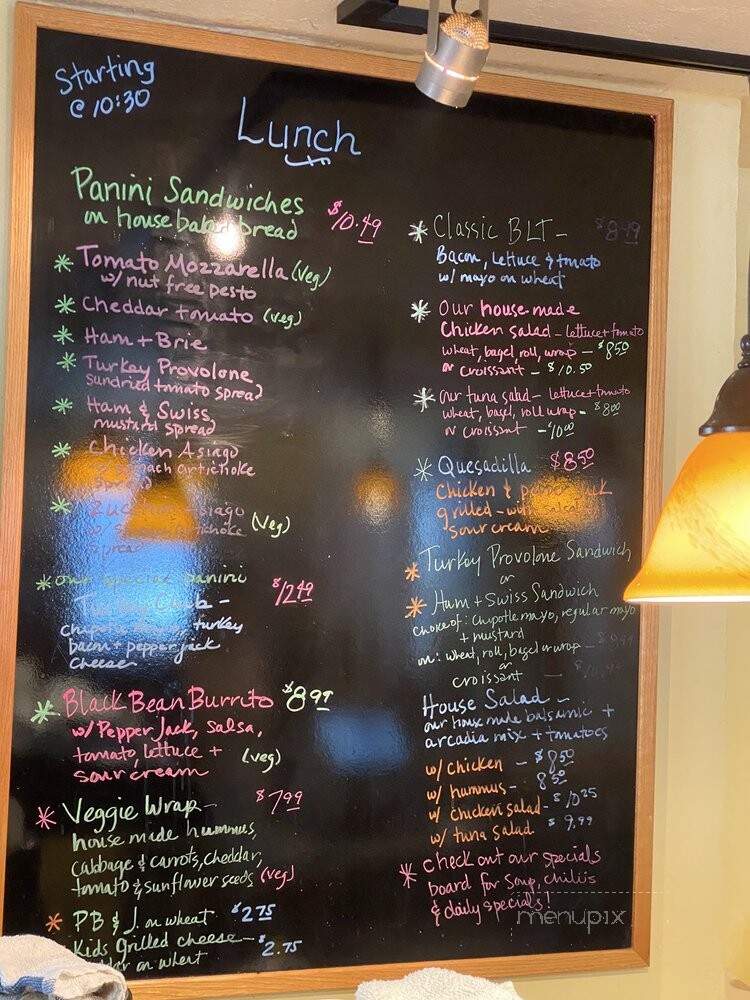 Starting
@ 10:30
Lunch
Panini Sandwiches $10.49
on house baked bread
* Tomato Mozzarella (veg)
w/ nut free pesto
* Cheddar tomato (veg)
* Ham + Brie
* Turkey Provolone
sundried tomato spread
* Ham & Swiss
mustard spread
* Chicken Asiago
spinach artichoke
spread
* Asiago
(Veg)
spread
* our special panini $12.49
Turkey Club -
turkey
bacon + pepper jack
cheese
* Black Bean Burrito $8.99
w/ Pepper Jack, salsa,
tomato, lettuce + (veg)
sour cream
* Veggie Wrap - $7.99
house made hummus,
cabbage & carrots, cheddar,
tomato & sunflower seeds (veg)
* PB & J. on wheat $2.75
Kids Grilled cheese - $2.75
on wheat
* Classic BLT -
Bacon, lettuce & tomato
w/ mayo on wheat
* Our house made
Chicken salad - lettuce + tomato
wheat, bagel, roll, wrap - $8.50
or croissant - $10.50
* our tuna salad - lettuce + tomato
wheat, bagel, roll wrap - $8.00
or croissant - 10.00
* Quesadilla $8.50
Chicken & pepper jack
grilled - with salsa &
sour cream
* Turkey Provolone Sandwich
or
* Ham + Swiss Sandwich
choice of: chipotle mayo, regular mayo
+ mustard
on: wheat, roll, bagel or wrap -
or
croissant -
House Salad -
our house made balsamic +
arcadia mix + tomatoes
w/ chicken - $8.50
w/ hummus - 8.50
w/ chicken salad - $10.25
w/ tuna salad $9.99
* check out our specials
board for soup, chilis
& daily specials!
menupix